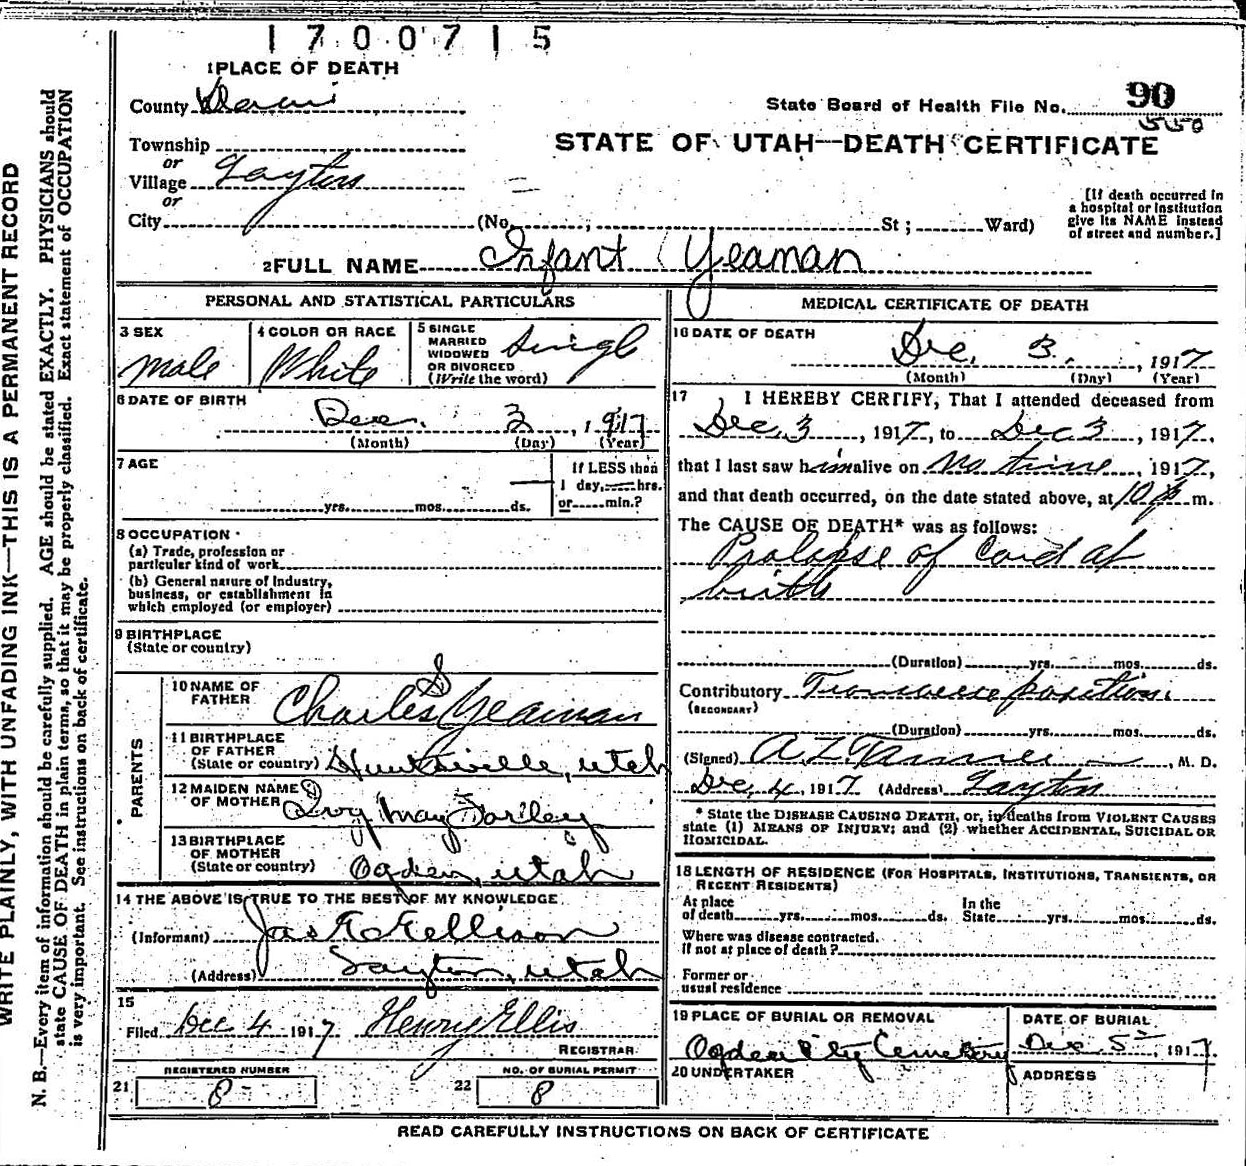 1700715
1 PLACE OF DEATH
County Davis
State Board of Health File No. 90
550
STATE OF UTAH—DEATH CERTIFICATE
Township
or
Village Layton
or
City (No. ; St ; Ward)
[If death occurred in
a hospital or institution
give its NAME instead
of street and number.]
2 FULL NAME Infant Yeaman
PERSONAL AND STATISTICAL PARTICULARS
3 SEX
male
4 COLOR OR RACE
White
5 SINGLE
MARRIED
WIDOWED
OR DIVORCED
(Write the word)
Singl
6 DATE OF BIRTH
Dec. 3, 1917
(Month) (Day) (Year)
7 AGE
yrs. mos. ds.
If LESS than
1 day, hrs.
or min.?
8 OCCUPATION
(a) Trade, profession or
particular kind of work
(b) General nature of Industry,
business, or establishment in
which employed (or employer)
9 BIRTHPLACE
(State or country)
PARENTS
10 NAME OF
FATHER
Charles S Yeaman
11 BIRTHPLACE
OF FATHER
(State or country) Huntsville, Utah
12 MAIDEN NAME
OF MOTHER Ivy May Farley
13 BIRTHPLACE
OF MOTHER
(State or country) Ogden, Utah
14 THE ABOVE IS TRUE TO THE BEST OF MY KNOWLEDGE
(Informant) Jas E Ellison
(Address) Layton, Utah
15
Filed Dec 4 1917 Henry Ellis
REGISTRAR
21 REGISTERED NUMBER
8
22 NO. OF BURIAL PERMIT
8
MEDICAL CERTIFICATE OF DEATH
16 DATE OF DEATH
Dec. 3, 1917
(Month) (Day) (Year)
17 I HEREBY CERTIFY, That I attended deceased from
Dec. 3, 1917, to Dec 3, 1917,
that I last saw him alive on no time, 1917,
and that death occurred, on the date stated above, at 10 m.
The CAUSE OF DEATH* was as follows:
Prolapse of Cord at
birth
(Duration) yrs. mos. ds.
Contributory Transverse position.
(SECONDARY)
(Duration) yrs. mos. ds.
(Signed) A. Z. Tanner, M. D.
Dec. 4, 1917 (Address) Layton
* State the DISEASE CAUSING DEATH, or, in deaths from VIOLENT CAUSES
state (1) MEANS OF INJURY; and (2) whether ACCIDENTAL, SUICIDAL OR
HOMICIDAL.
18 LENGTH OF RESIDENCE (FOR HOSPITALS, INSTITUTIONS, TRANSIENTS, OR
RECENT RESIDENTS)
At place
of death yrs. mos. ds.
In the
State yrs. mos. ds.
Where was disease contracted.
if not at place of death?
Former or
usual residence
19 PLACE OF BURIAL OR REMOVAL
Ogden City Cemetery
DATE OF BURIAL
Dec 5, 1917
20 UNDERTAKER
ADDRESS
READ CAREFULLY INSTRUCTIONS ON BACK OF CERTIFICATE
WRITE PLAINLY, WITH UNFADING INK—THIS IS A PERMANENT RECORD
N. B.—Every item of information should be carefully supplied. AGE should be stated EXACTLY. PHYSICIANS should
state CAUSE OF DEATH in plain terms, so that it may be properly classified. Exact statement of OCCUPATION
is very important. See instructions on back of certificate.